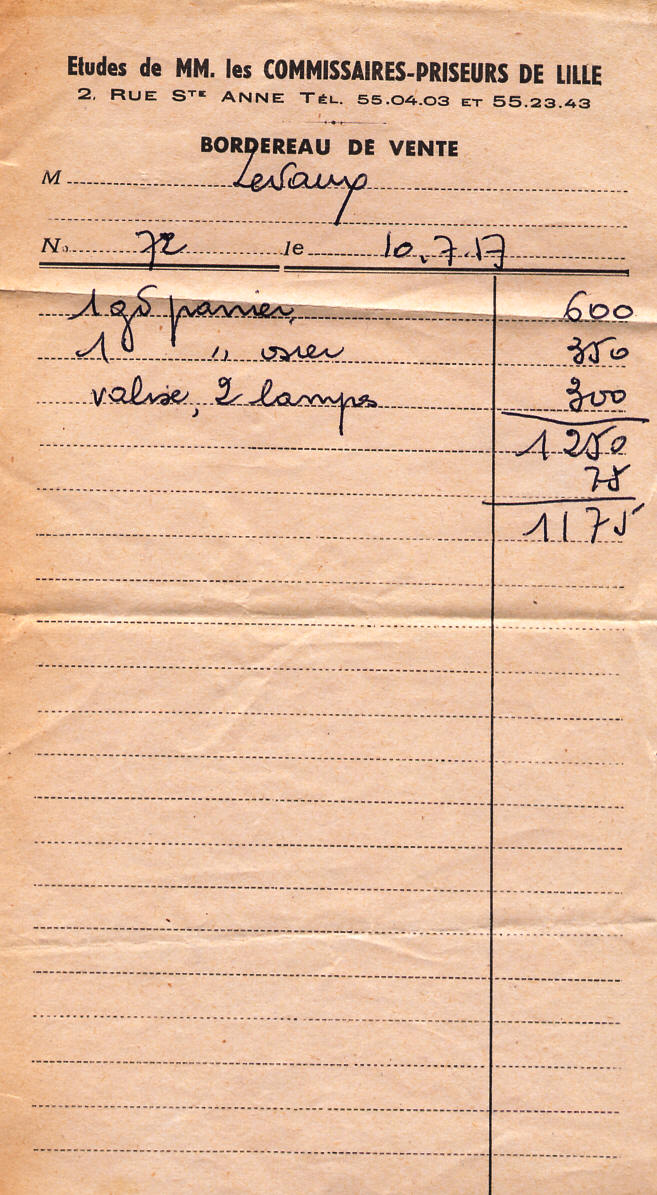 Etudes de MM. les COMMISSAIRES-PRISEURS DE LILLE
2, RUE STE ANNE TÉL. 55.04.03 ET 55.23.43
BORDEREAU DE VENTE
M Levaux
No 72 le 10.7.17
1 gd panier, 600
1 " osier 350
valise, 2 lampes 300
1 250
75
1175